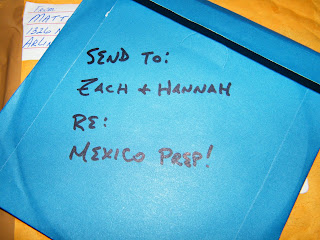 MATT
1326 N
ARLIN
SEND TO:
ZACH + HANNAH
RE:
MEXICO PREP!